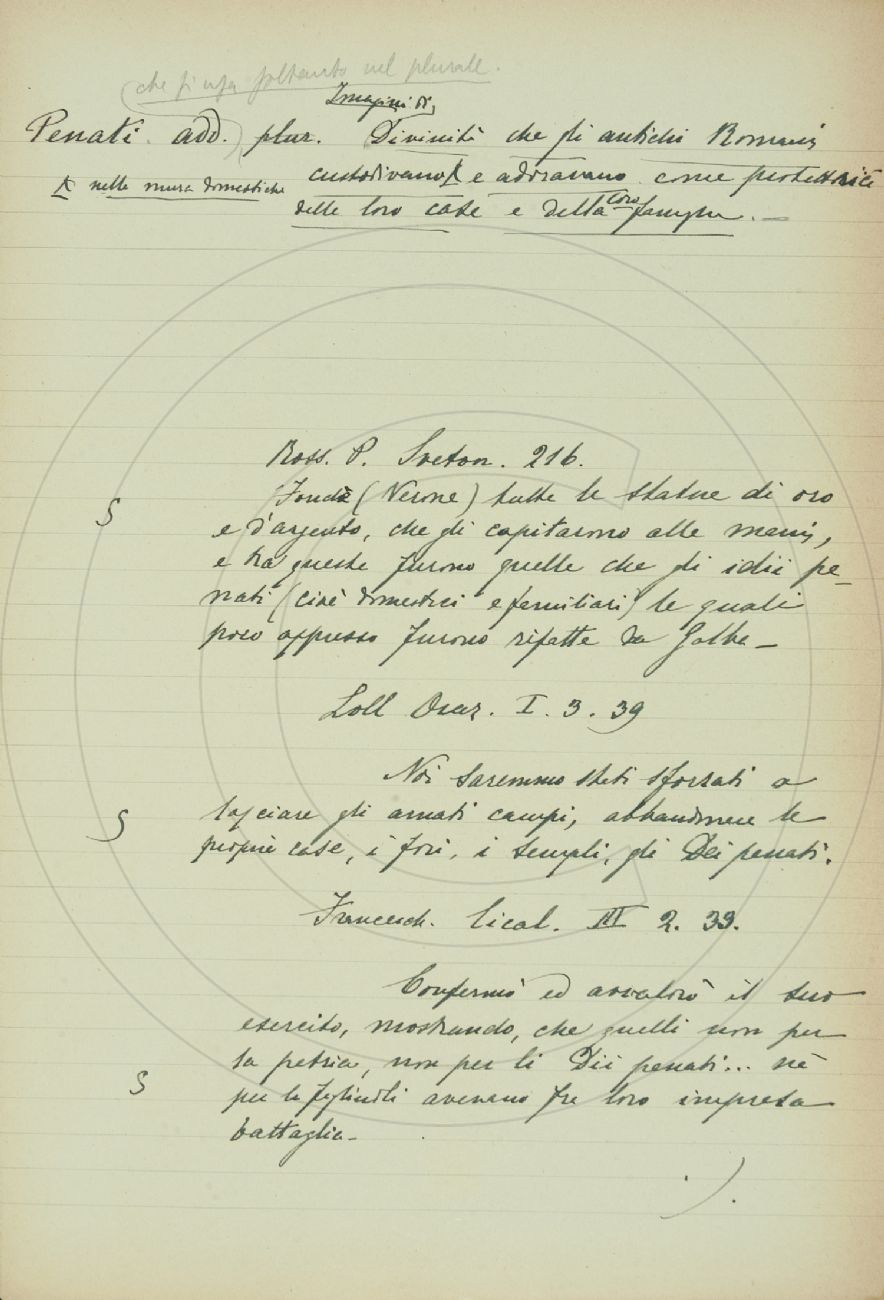 che si usa soltanto nel plurale.
Imagini di
Penati. add. plur. Divinità che gli antichi Romani
⁁ nelle mura domestiche custodivano ⁁ e adoravano come protettrici
delle loro case e della loro famiglia. —
Ross. P. Sveton. 216.
S
Fondè (Nerone) tutte le statue di oro
e d'argento, che gli capitarono alle mani,
e tra queste furono quelle che gli idii pe-
nati (cioè domestici e familiari) le quali
poco appresso furono rifatte da Galba —
Loll Oraz. I. 3. 39
Noi saremmo stati sforzati a
S
lasciare gli amati campi, abbandonare le
proprie case, i fori, i templi, gli Dei penati.
Francesch. Lical. III 2. 39.
Confermò ed avvalorò il suo
esercito, mostrando, che quelli non per
la patria, non per li Dii penati... nè
S
per le figliuoli avevano fre loro impresa
battaglia —